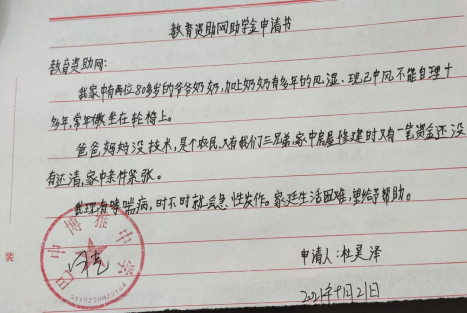 教育资助网助学金申请书
教育资助网：
我家中有两位80多岁的爷爷奶奶，加上奶奶有多年的风湿．现已中风不能自理十
多年，常年瘫坐在轮椅上。
爸爸妈妈没技术，是个农民，又有我们三兄弟，家中房屋修建时又有一笔资金还没
有还清，家中条件紧张。
我现有哮喘病，时不时就急性发作。家庭生活困难，望给予帮助。
申请人：杜昊泽
2021年11月21日
巴中博雅中学
装